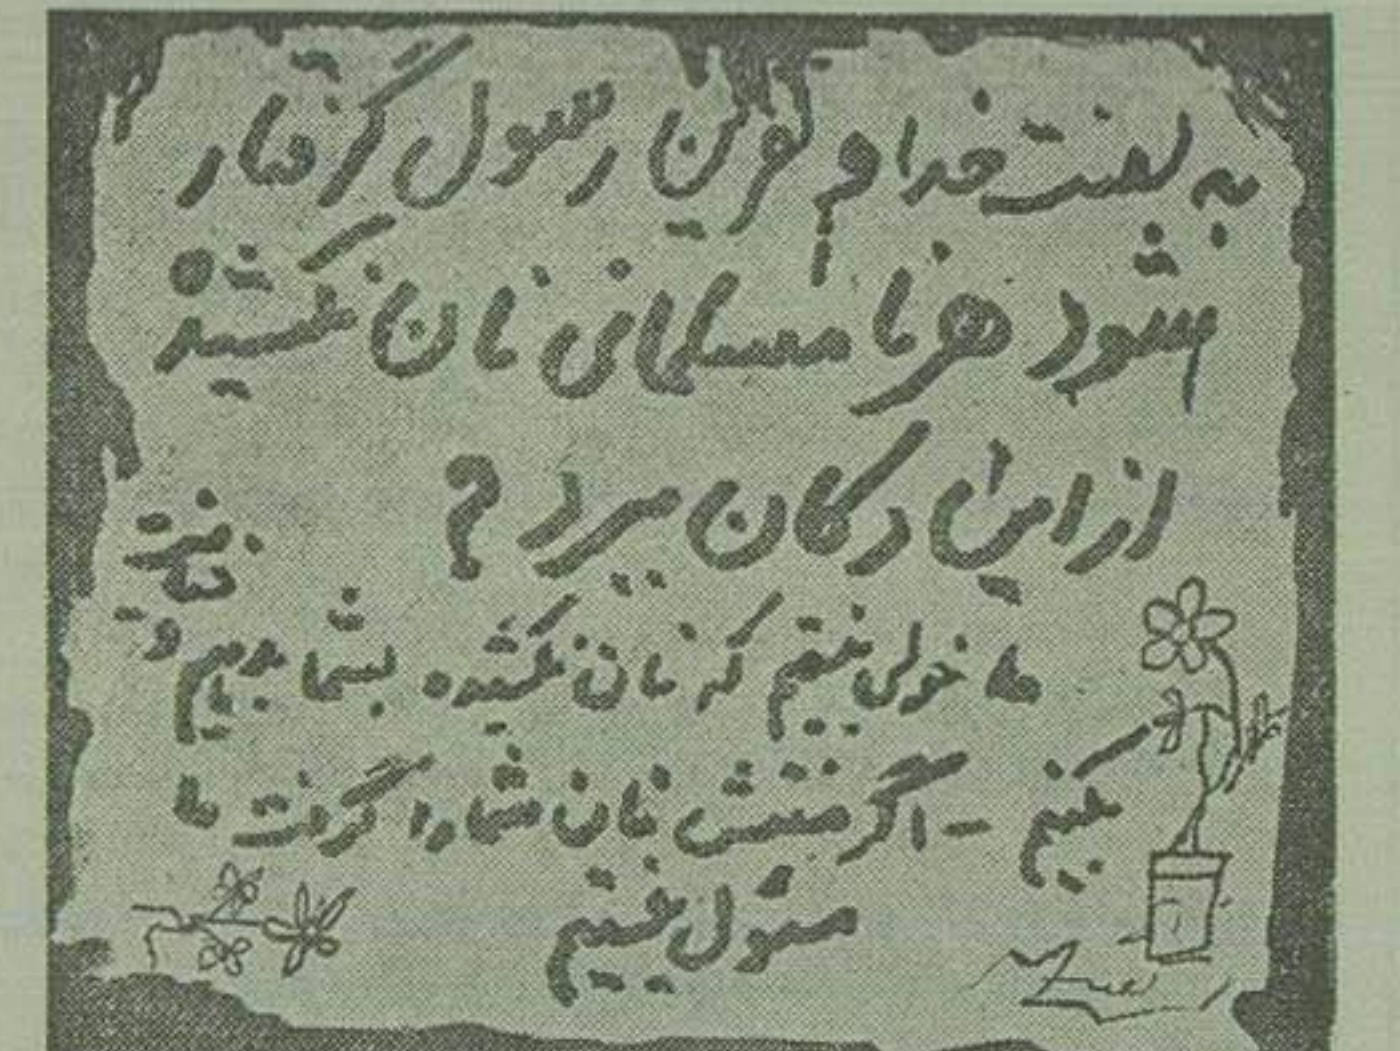 به لعنت خدا و نفرین رسول گرفتار
شود هر نا مسلمانی نان نکشیده
از این دکان ببرد ؟
ما خولی نیستیم که نان نکشیده بشما بدهیم و خیانت
بکنیم - اگر مفتش نان شما را گرفت ما
مسئول نیستیم